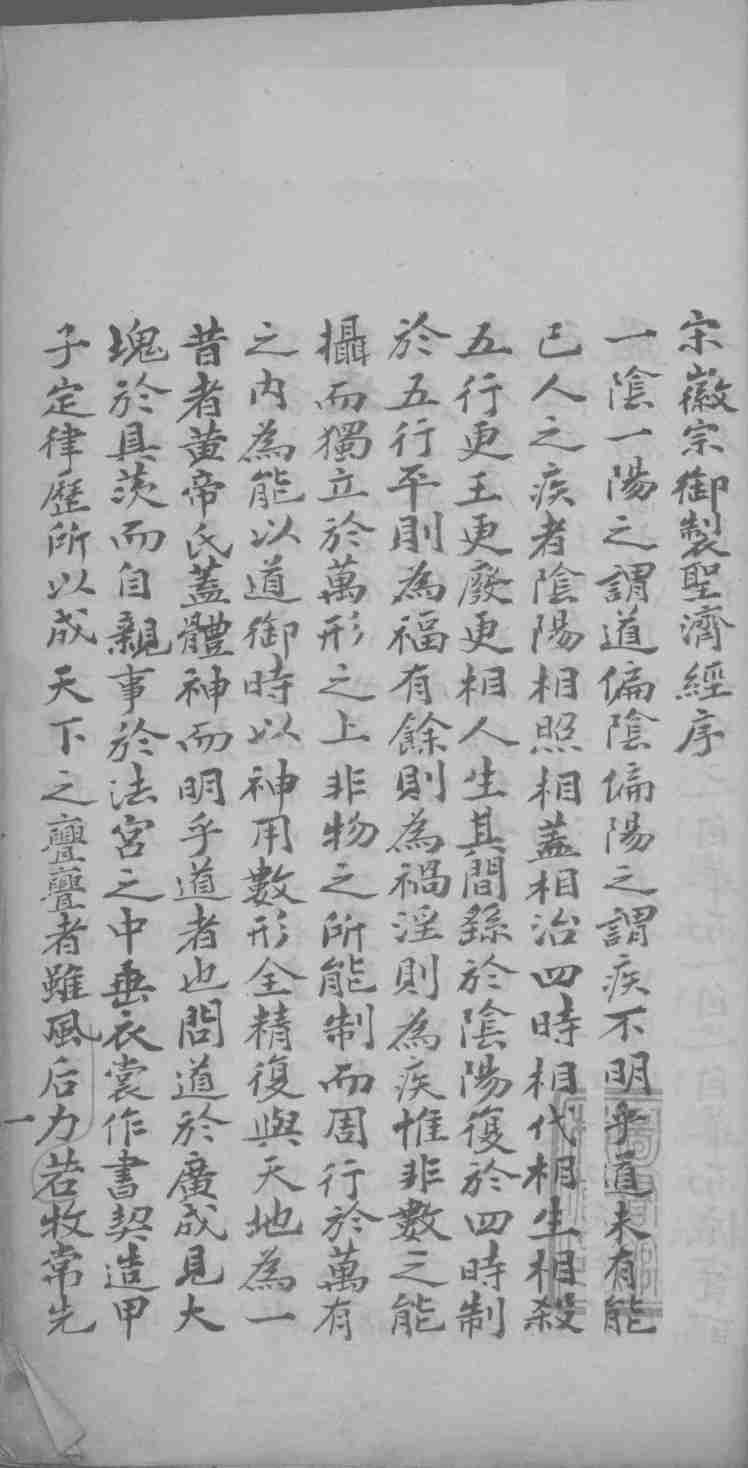 宋徽宗御製聖濟經序
一陰一陽之謂道偏陰偏陽之謂疾不明乎道未有能
已人之疾者陰陽相照相蓋相治四時相代相生相殺
五行更王更廢更相人生其間繇於陰陽復於四時制
於五行平則為福有餘則為禍淫則為疾惟非數之能
攝而獨立於萬形之上非物之所能制而周行於萬有
之內為能以道御時以神用數形全精復與天地為一
昔者黄帝氏蓋體神而明乎道者也問道於廣成見大
塊於具茨而自親事於法宮之中垂衣裳作書契造甲
子定律歷所以成天下之亹亹者雖風后力若牧常先
一